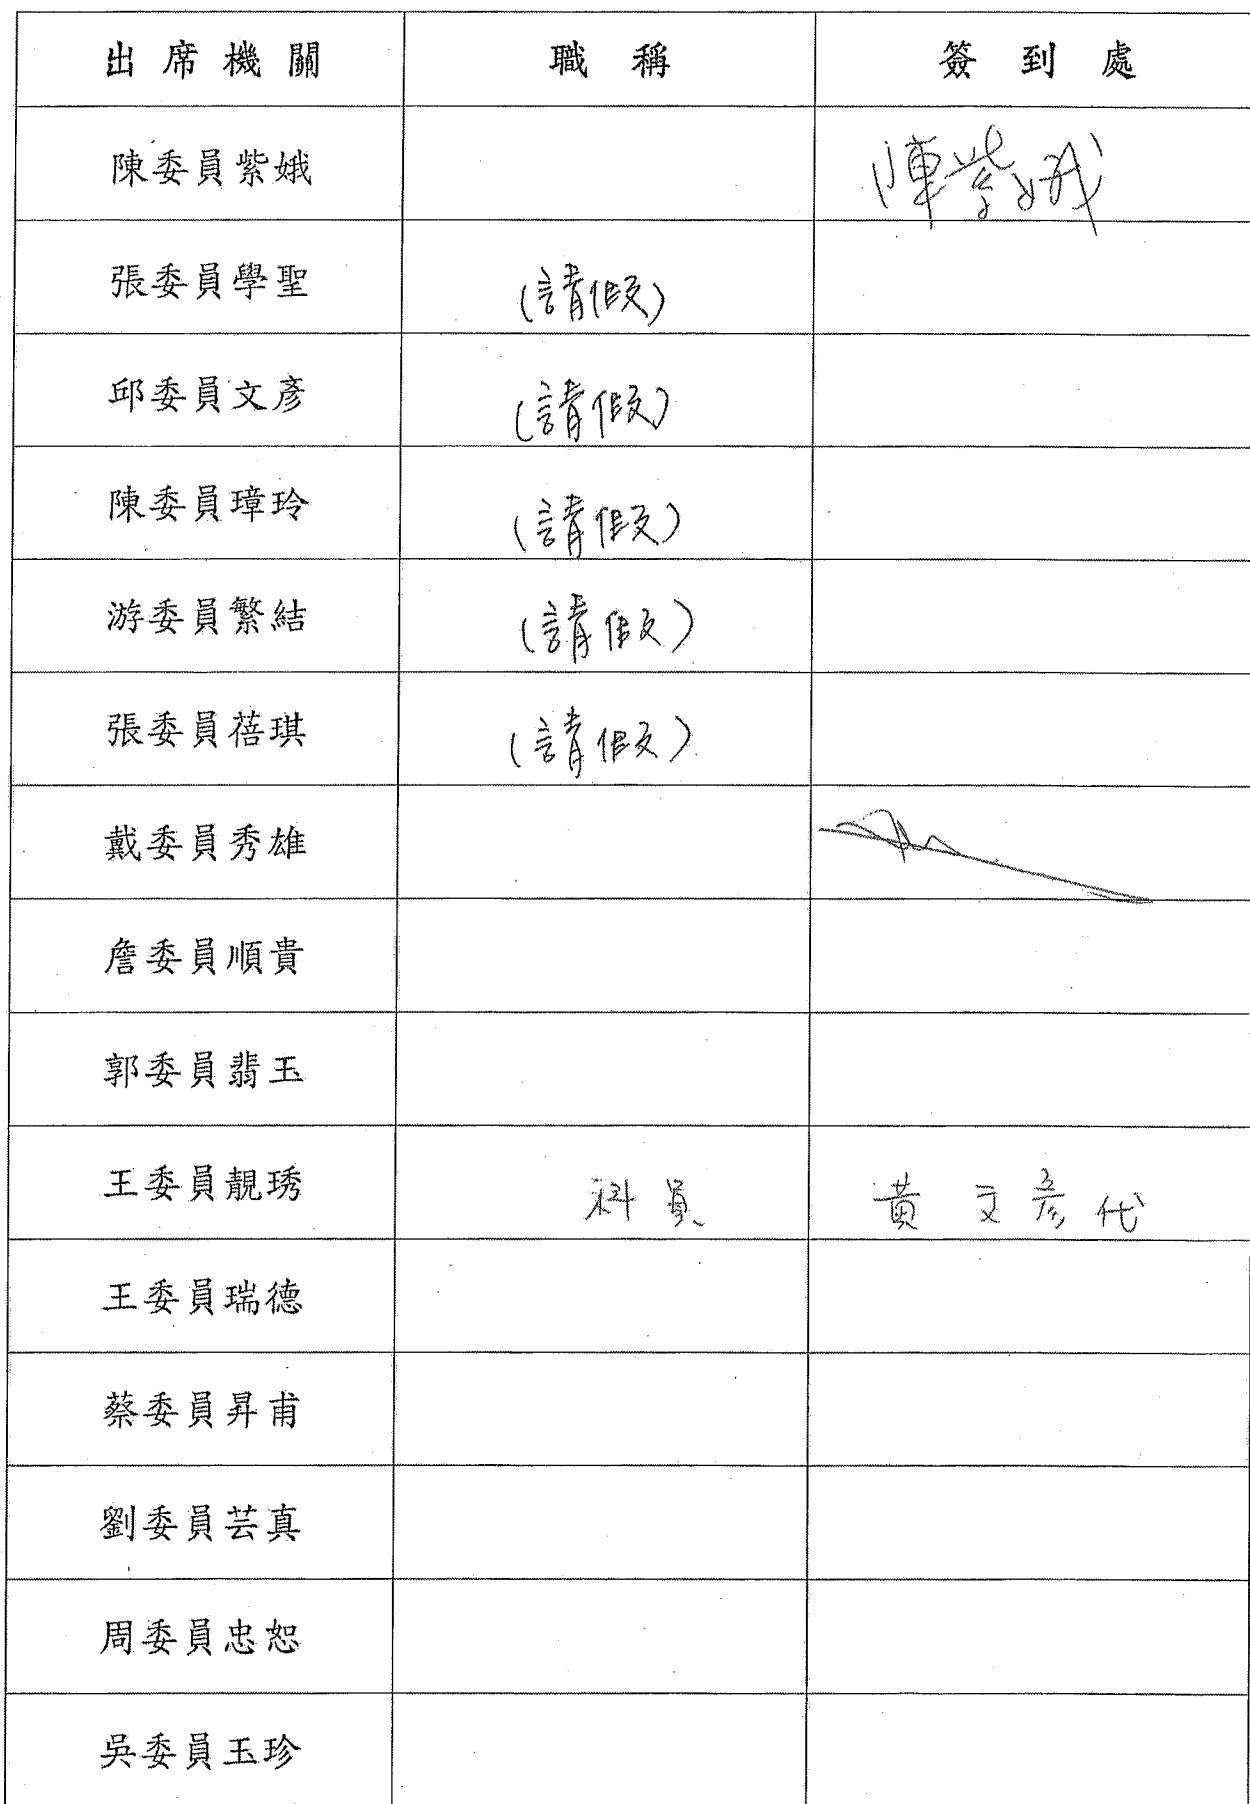 出席機關 職稱 簽到處
陳委員紫娥 陳紫娥
張委員學聖 (請假)
邱委員文彥 (請假)
陳委員璋玲 (請假)
游委員繁結 (請假)
張委員蓓琪 (請假)
戴委員秀雄
詹委員順貴
郭委員翡玉
王委員靚琇 科員 黃文彥代
王委員瑞德
蔡委員昇甫
劉委員芸真
周委員忠恕
吳委員玉珍